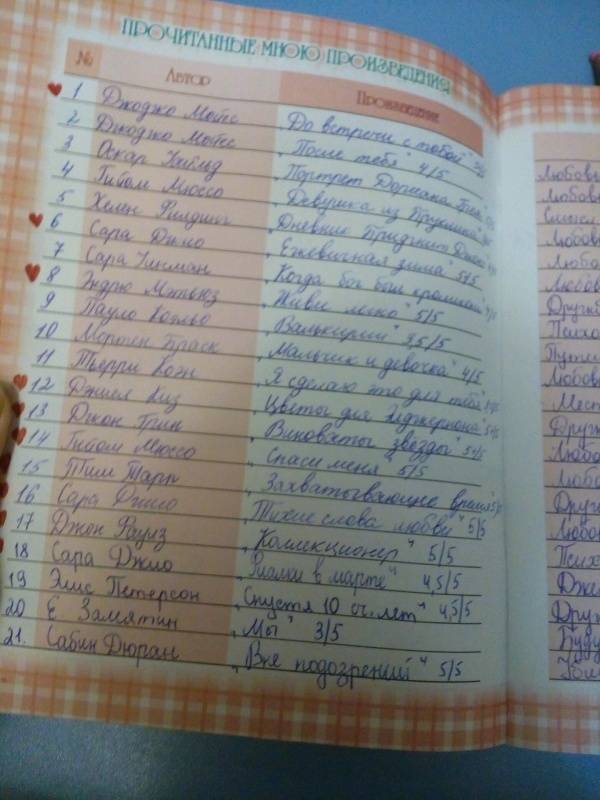 ПРОЧИТАННЫЕ МНОЮ ПРОИЗВЕДЕНИЯ
№ АВТОР ПРОИЗВЕДЕНИЕ
1 Джоджо Мойес „До встречи с тобой"
2 Джоджо Мойес „После тебя" 4/5
3 Оскар Уайльд „Портрет Дориана Грея"
4 Гийом Мюссо „Девушка из Бруклина"
5 Хелен Филдинг „Дневник Бриджит Джонс"
6 Сара Джио „Ежевичная зима" 5/5
7 Сара Уинман „Когда бог был кроликом" 4/5
8 Эндрю Мэтьюз „Живи легко" 5/5
9 Пауло Коэльо „Валькирии" 3,5/5
10 Мортен Браск „Мальчик и девочка" 4/5
11 Тьерри Коэн „Я сделаю это для тебя"
12 Дэниел Киз „Цветы для Элджернона" 5/5
13 Джон Грин „Виноваты звёзды" 5/5
14 Гийом Мюссо „Спаси меня" 5/5
15 Тим Тарп „Захватывающее время" 5/5
16 Сара Джио „Тихие слова любви" 5/5
17 Джон Фаулз „Коллекционер" 5/5
18 Сара Джио „Фиалки в марте" 4,5/5
19 Элис Петерсон „Спустя 10 сч. лет" 4,5/5
20 Е. Замятин „Мы" 3/5
21. Сабин Дюран „Вне подозрений" 5/5
Любовь
Любовь
Смысл
Любовь
Любо
Любов
Друж
Психо
Путе
Любов
Мест
Друж
Любо
Любо
Друж
Любо
Псих
Дже
Друж
Буду